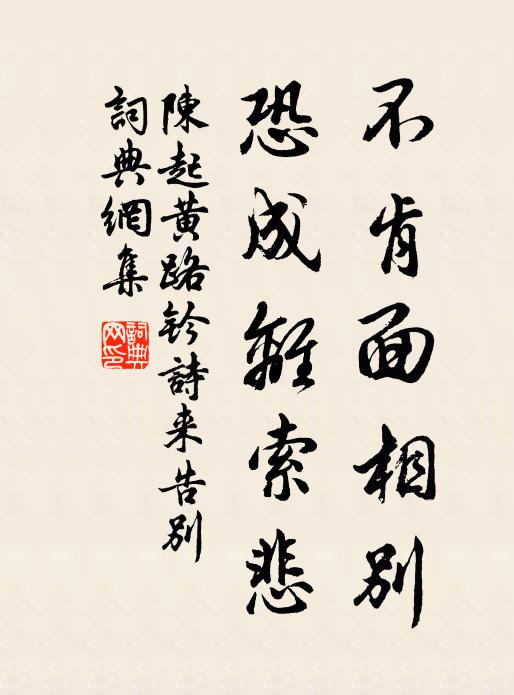 不肯面相别
恐成離索悲
陳起黄路鈐詩来告别
詞典網集
詞典網印